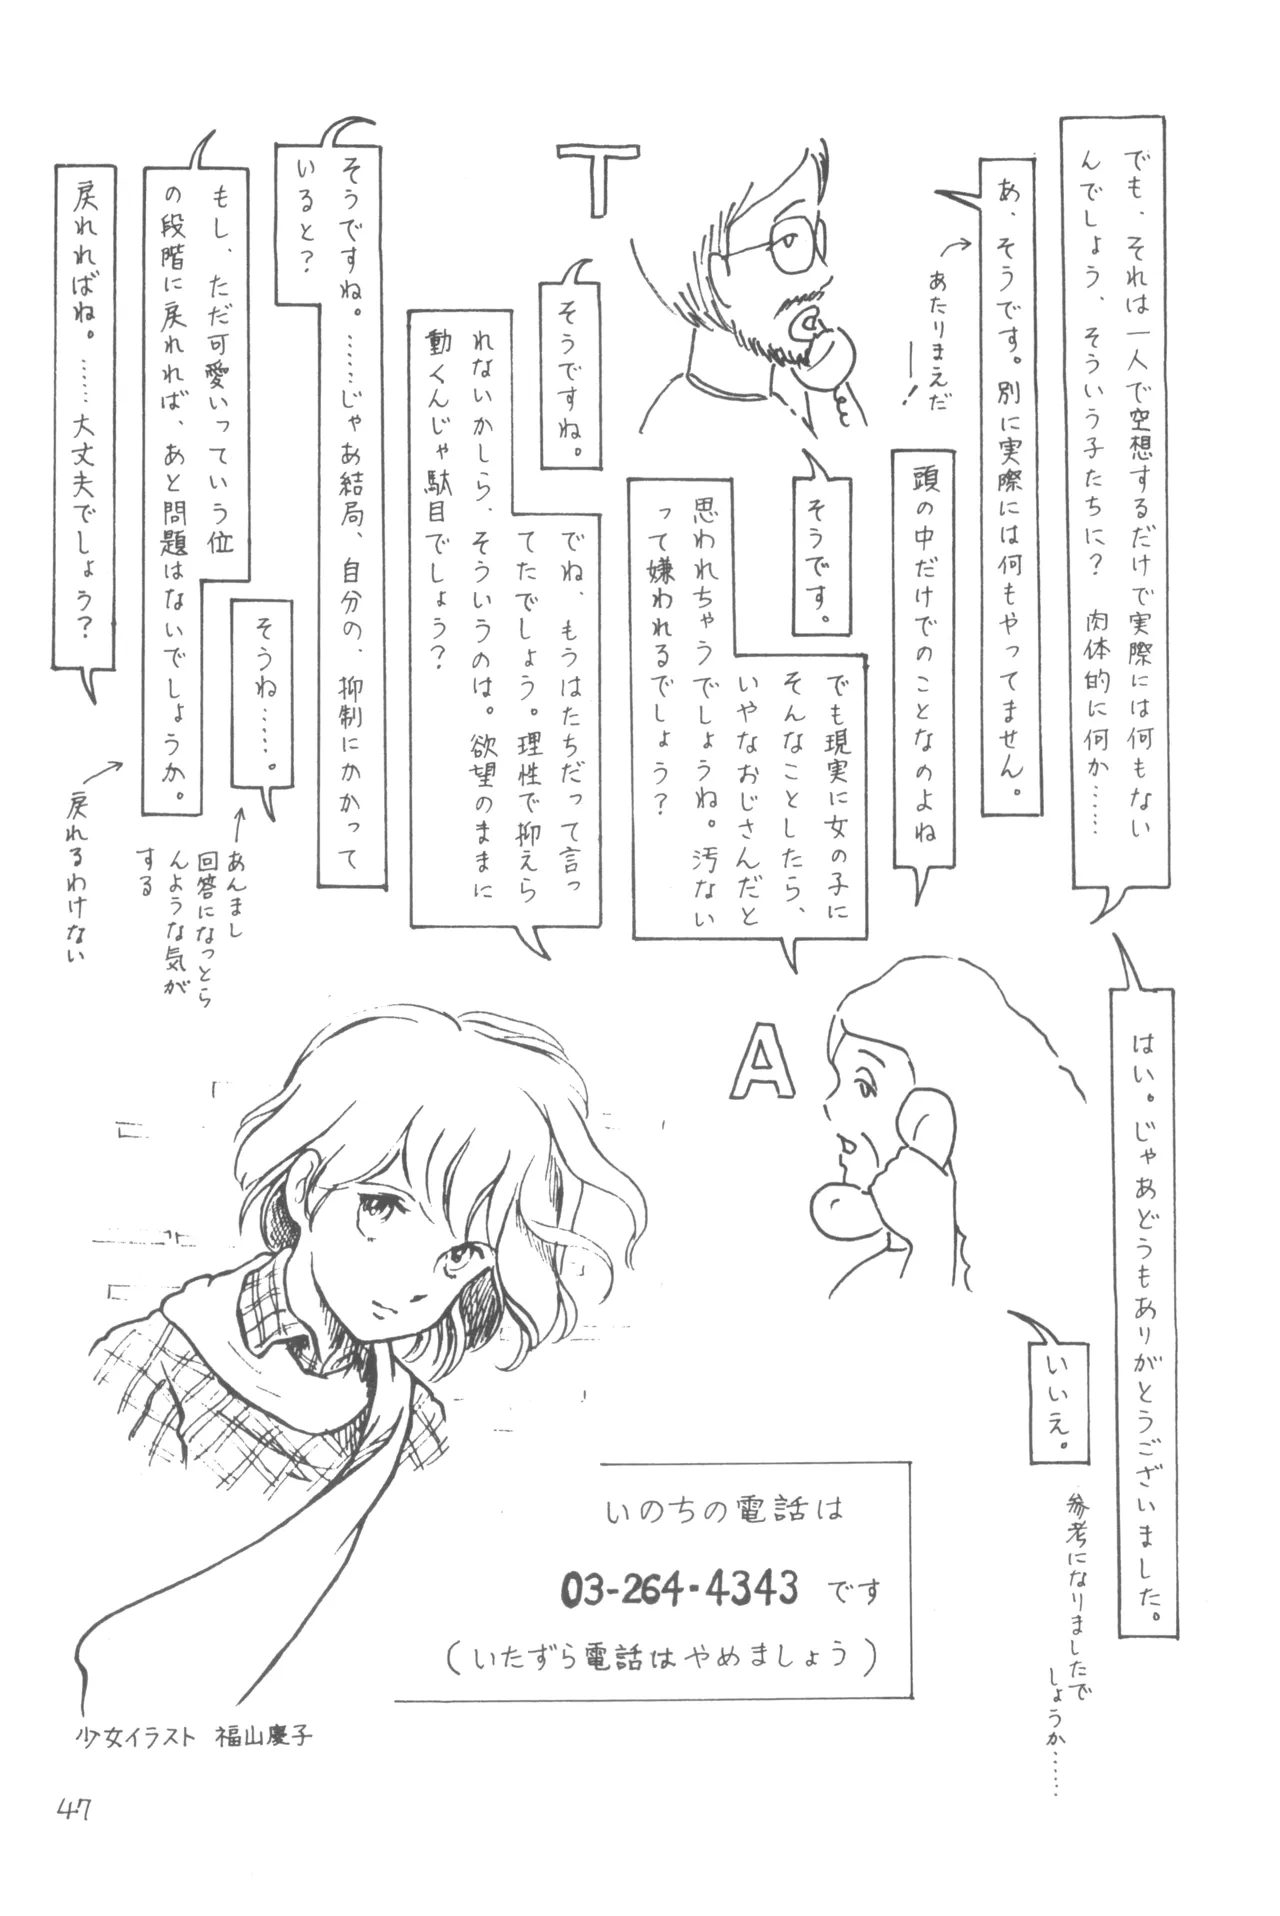 でも、それは一人で空想するだけで実際には何もない
んでしょう、そういう子たちに？　肉体的に何か……
あ、そうです。別に実際には何もやってません。
あたりまえだ
――！
頭の中だけでのことなのよね
そうです。
でも現実に女の子に
そんなことしたら、
いやなおじさんだと
思われちゃうでしょうね。汚ない
って嫌われるでしょう？
T
そうですね。
でね、もうはたちだって言っ
てたでしょう。理性で抑えら
れないかしら、そういうのは。欲望のままに
動くんじゃ駄目でしょう？
そうですね。……じゃあ結局、自分の、抑制にかかって
いると？
そうね……。
あんまし
回答になっとら
んような気が
する
もし、ただ可愛いっていう位
の段階に戻れれば、あと問題はないでしょうか。
戻れればね。……大丈夫でしょう？
戻れるわけない
はい。じゃあどうもありがとうございました。
いいえ。
参考になりましたで
しょうか……
A
いのちの電話は
03-264・4343 です
(いたずら電話はやめましょう)
少女イラスト　福山慶子
47